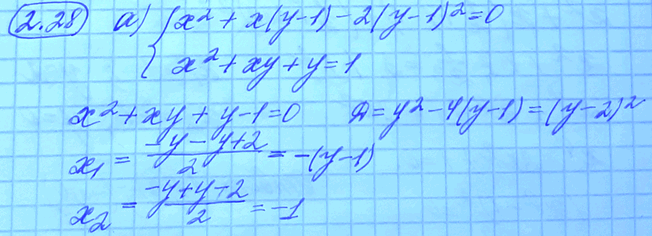 2.28 a) { x² + x(y-1) - 2(y-1)² = 0
x² + xy + y = 1
x² + xy + y - 1 = 0 D = y² - 4(y-1) = (y-2)²
x₁ = (-y - y + 2)/2 = -(y-1)
x₂ = (-y + y - 2)/2 = -1